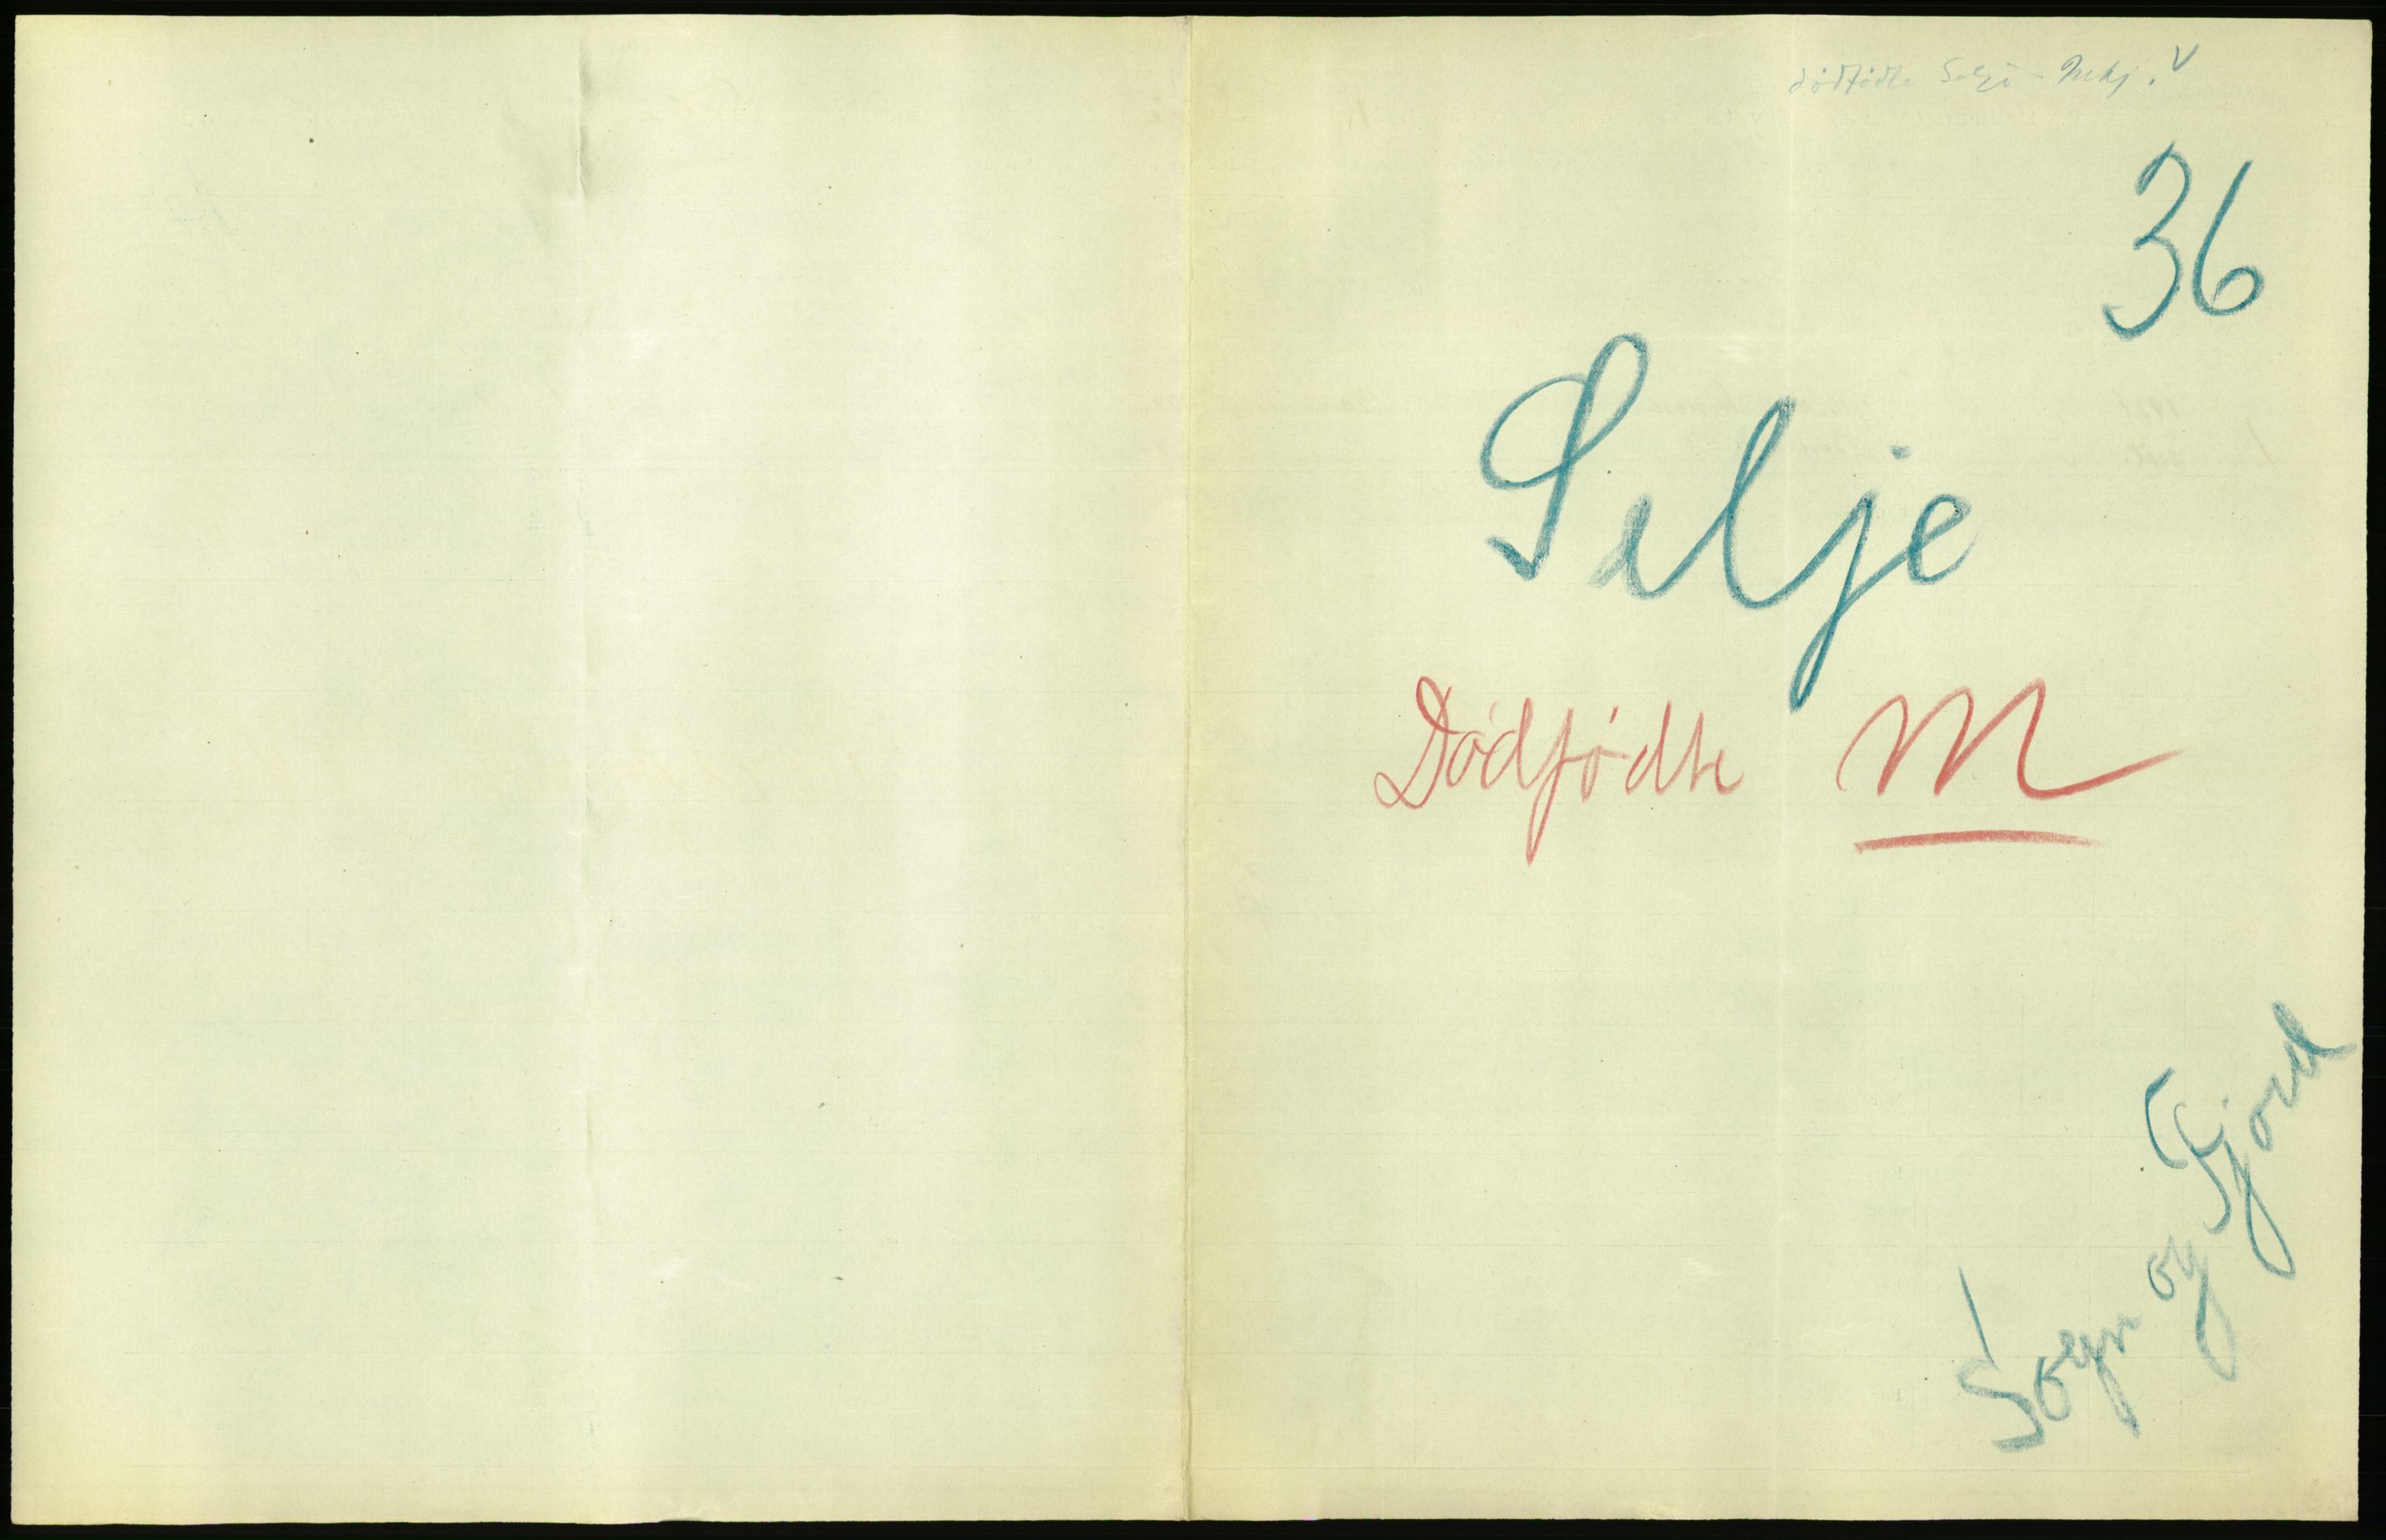 dødfødte Selje
36
Selje
Dødfødte M
Sogn og Fjord